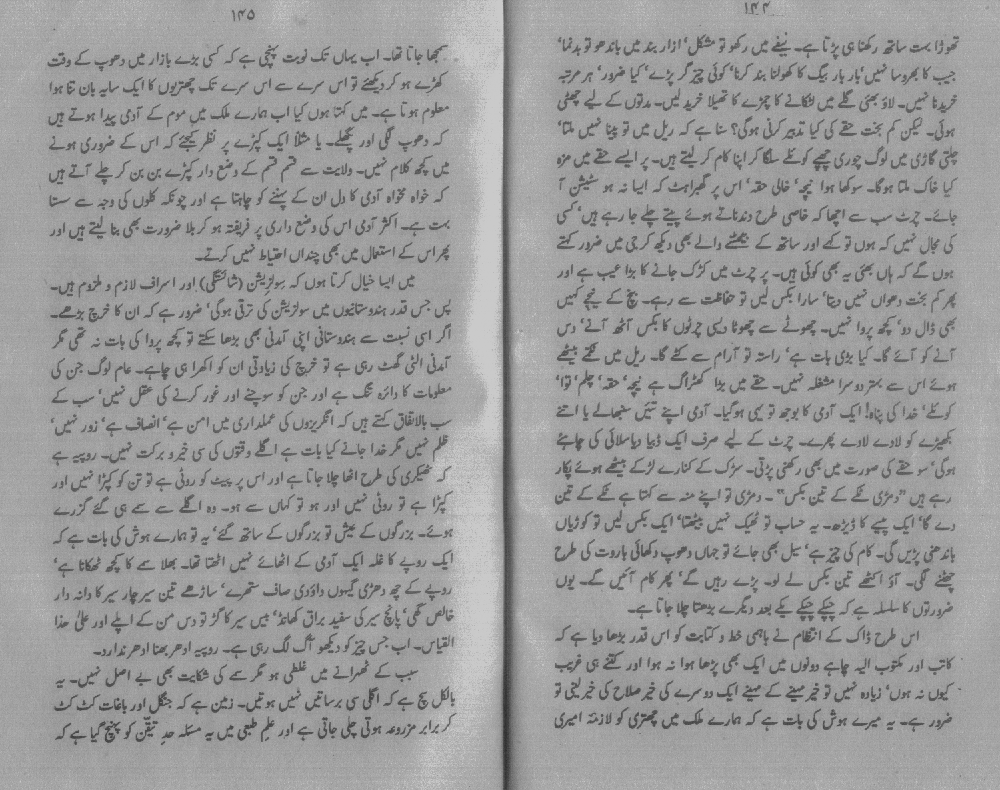 ۱۴۴
تھوڑا بہت ساتھ رکھنا ہی پڑتا ہے۔ نیفے میں رکھو تو مشکل‘ ازار بند میں باندھو تو بدنما‘
جیب کا بھروسا نہیں‘ بار بار بیگ کا کھولنا بند کرنا‘ کوئی چیز گر پڑے‘ کیا ضرور‘ ہر مرتبہ
خریدنا نہیں۔ لاؤ بھئی گلے میں لٹکانے کا چمڑے کا تھیلا خرید لیں۔ مدتوں کے لیے چھٹی
ہوئی۔ لیکن کم بخت حقے کی کیا تدبیر کرنی ہوگی؟ سنا ہے کہ ریل میں تو پینا نہیں ملتا‘
چلتی گاڑی میں لوگ چوری چھپے کوئلے سلگا کر اپنا کام کر لیتے ہیں۔ پر ایسے حقے میں مزہ
کیا خاک ملتا ہوگا۔ سوکھا ہوا نیچہ‘ خالی حقہ‘ اس پر گھبراہٹ کہ ایسا نہ ہو سٹیشن آ
جائے۔ چرٹ سب سے اچھا کہ خاصی طرح دندناتے ہوئے پیتے چلے جا رہے ہیں‘ کسی
کی مجال نہیں کہ ہوں تو کہے اور ساتھ کے بیٹھنے والے بھی دیکھ کر جی میں ضرور کہتے
ہوں گے کہ ہاں بھئی یہ بھی کوئی ہیں۔ پر چرٹ میں کڑک جانے کا بڑا عیب ہے اور
پھر کم بخت دھواں نہیں دیتا‘ سارا بکس لیں تو حفاظت سے رہے۔ بنچ کے نیچے کہیں
بھی ڈال دو‘ کچھ پروا نہیں۔ چھوٹے سے چھوٹا دیسی چرٹوں کا بکس آٹھ آنے‘ دس
آنے کو آئے گا۔ کیا بڑی بات ہے‘ راستہ تو آرام سے کٹے گا۔ ریل میں نکمے بیٹھے
ہوئے اس سے بہتر دوسرا مشغلہ نہیں۔ حقے میں بڑا کھڑاگ ہے نیچہ‘ حقہ‘ چلم‘ توا‘
کوئلے‘ خدا کی پناہ! ایک آدمی کا بوجھ تو یہی ہوگیا۔ آدمی اپنے تئیں سنبھالے یا اتنے
بکھیڑے کو لادے لادے پھرے۔ چرٹ کے لیے صرف ایک ڈبیا دیاسلائی کی چاہئے
ہوگی‘ سو حقے کی صورت میں بھی رکھنی پڑتی۔ سڑک کے کنارے لڑکے بیٹھے ہوئے پکار
رہے ہیں ”دمڑی ٹکے کے تین بکس“۔ دمڑی تو اپنے منہ سے کہتا ہے ٹکے کے تین
دے گا‘ ایک پیسے کا ڈیڑھ۔ یہ حساب تو ٹھیک نہیں بیٹھتا‘ ایک بکس لیں تو کوڑیاں
باندھنی پڑیں گی۔ کام کی چیز ہے‘ سیل بھی جائے تو جہاں دھوپ دکھائی باروت کی طرح
چھٹنے لگی۔ آؤ اکٹھے تین بکس لے لو۔ پڑے رہیں گے‘ پھر کام آئیں گے۔ یوں
ضرورتوں کا سلسلہ ہے کہ چپکے چپکے یکے بعد دیگرے بڑھتا چلا جاتا ہے۔
اس طرح ڈاک کے انتظام نے باہمی خط و کتابت کو اس قدر بڑھا دیا ہے کہ
کاتب اور مکتوب الیہ چاہے دونوں میں ایک بھی پڑھا ہوا نہ ہوا اور کتنے ہی غریب
کیوں نہ ہوں‘ زیادہ نہیں تو خیر مہینے کے مہینے ایک دوسرے کی خیر صلاح کی خبر لیتی تو
ضرور ہے۔ یہ میرے ہوش کی بات ہے کہ ہمارے ملک میں چھتری کو لازمۂ امیری
۱۴۵
سمجھا جاتا تھا۔ اب یہاں تک نوبت پہنچی ہے کہ کسی بڑے بازار میں دھوپ کے وقت
کھڑے ہو کر دیکھئے تو اس سرے سے اس سرے تک چھتریوں کا ایک سایہ بان تنا ہوا
معلوم ہوتا ہے۔ میں کہتا ہوں کیا اب ہمارے ملک میں موم کے آدمی پیدا ہوتے ہیں
کہ دھوپ لگی اور پگھلے۔ یا مثلاً ایک کپڑے پر نظر کیجئے کہ اس کے ضروری ہونے
میں کچھ کلام نہیں۔ ولایت سے قسم قسم کے وضع دار کپڑے بن بن کر چلے آتے ہیں
کہ خواہ مخواہ آدمی کا دل ان کے پہننے کو چاہتا ہے اور چونکہ کلوں کی وجہ سے سستا
بہت ہے۔ اکثر آدمی اس کی وضع داری پر فریفتہ ہو کر بلا ضرورت بھی بنا لیتے ہیں اور
پھر اس کے استعمال میں بھی چنداں احتیاط نہیں کرتے۔
میں ایسا خیال کرتا ہوں کہ سولزیشن (شائستگی) اور اسراف لازم و ملزوم ہیں۔
پس جس قدر ہندوستانیوں میں سولزیشن کی ترقی ہوگی‘ ضرور ہے کہ ان کا خرچ بڑھے۔
اگر اسی نسبت سے ہندوستانی اپنی آمدنی بھی بڑھا سکتے تو کچھ پروا کی بات نہ تھی مگر
آمدنی الٹی گھٹ رہی ہے تو خرچ کی زیادتی ان کو اکھرا ہی چاہے۔ عام لوگ جن کی
معلومات کا دائرہ تنگ ہے اور جن کو سوچنے اور غور کرنے کی عقل نہیں‘ سب کے
سب بالاتفاق کہتے ہیں کہ انگریزوں کی عملداری میں امن ہے‘ انصاف ہے‘ زور نہیں‘
ظلم نہیں مگر خدا جانے کیا بات ہے اگلے وقتوں کی سی خیر و برکت نہیں۔ روپیہ ہے
کہ ٹھیکری کی طرح اٹھا چلا جاتا ہے اور اس پر پیٹ کو روٹی ہے تو تن کو کپڑا نہیں اور
کپڑا ہے تو روٹی نہیں اور ہو تو کہاں سے ہو۔ وہ اگلے سے سمے ہی گئے گزرے
ہوئے۔ بزرگوں کے عیش تو بزرگوں کے ساتھ گئے‘ یہ تو ہمارے ہوش کی بات ہے کہ
ایک روپے کا غلہ ایک آدمی کے اٹھائے نہیں اٹھتا تھا۔ بھلا سے کا کچھ ٹھکانا ہے‘
روپے کے چھ دھڑی گیہوں داؤدی صاف ستھرے‘ ساڑھے تین سیر چار سیر کا دانہ دار
خالص گھی‘ پانچ سیر کی سفید براق کھانڈ‘ بیس سیر کا گڑ تو دس من کے اپلے اور علیٰ ھذا
القیاس۔ اب جس چیز کو دیکھو آگ لگ رہی ہے۔ روپیہ ادھر بھنا ادھر ندارد۔
سبب کے ٹھہرانے میں غلطی ہو مگر سمے کی شکایت بھی بے اصل نہیں۔ یہ
بالکل سچ ہے کہ اگلی سی برساتیں نہیں ہوتیں۔ زمین ہے کہ جنگل اور باغات کٹ کٹ
کر برابر مزروعہ ہوتی چلی جاتی ہے اور علم طبعی میں یہ مسئلہ حدِ تیقّن کو پہنچ گیا ہے کہ